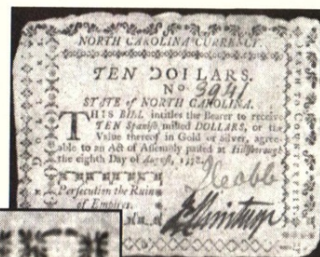 NORTH CAROLINA CURRENCY.
TEN DOLLARS.
No 3941
STATE of NORTH CAROLINA.
THIS BILL intitles the Bearer to receive
TEN Spanish milled DOLLARS, or the
Value thereof in Gold or Silver, agree-
able to an Act of Assembly passed at Hillsborough
the eighth Day of August, 1778.
Persecution the Ruin
of Empires.
DEATH TO COUNTERFEIT
DOLLARS